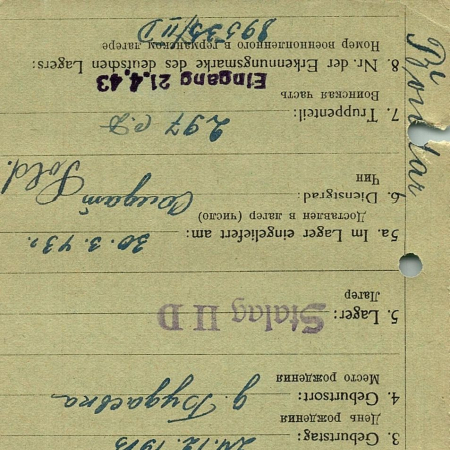 3. Geburtstag:
День рождения
4. Geburtsort: д. Будаевка
Место рождения
5. Lager: Stalag II D
Лагер
5a. Im Lager eingeliefert am: 30.3.43 г.
Доставлен в лагер (число)
6. Dienstgrad: Солдат Sold.
Чин
7. Truppenteil: 297 с.д
Воинская часть
Eingang 21.4.43
8. Nr. der Erkennungsmarke des deutschen Lagers:
Номер военнопленного в германском лагере
89535/II D